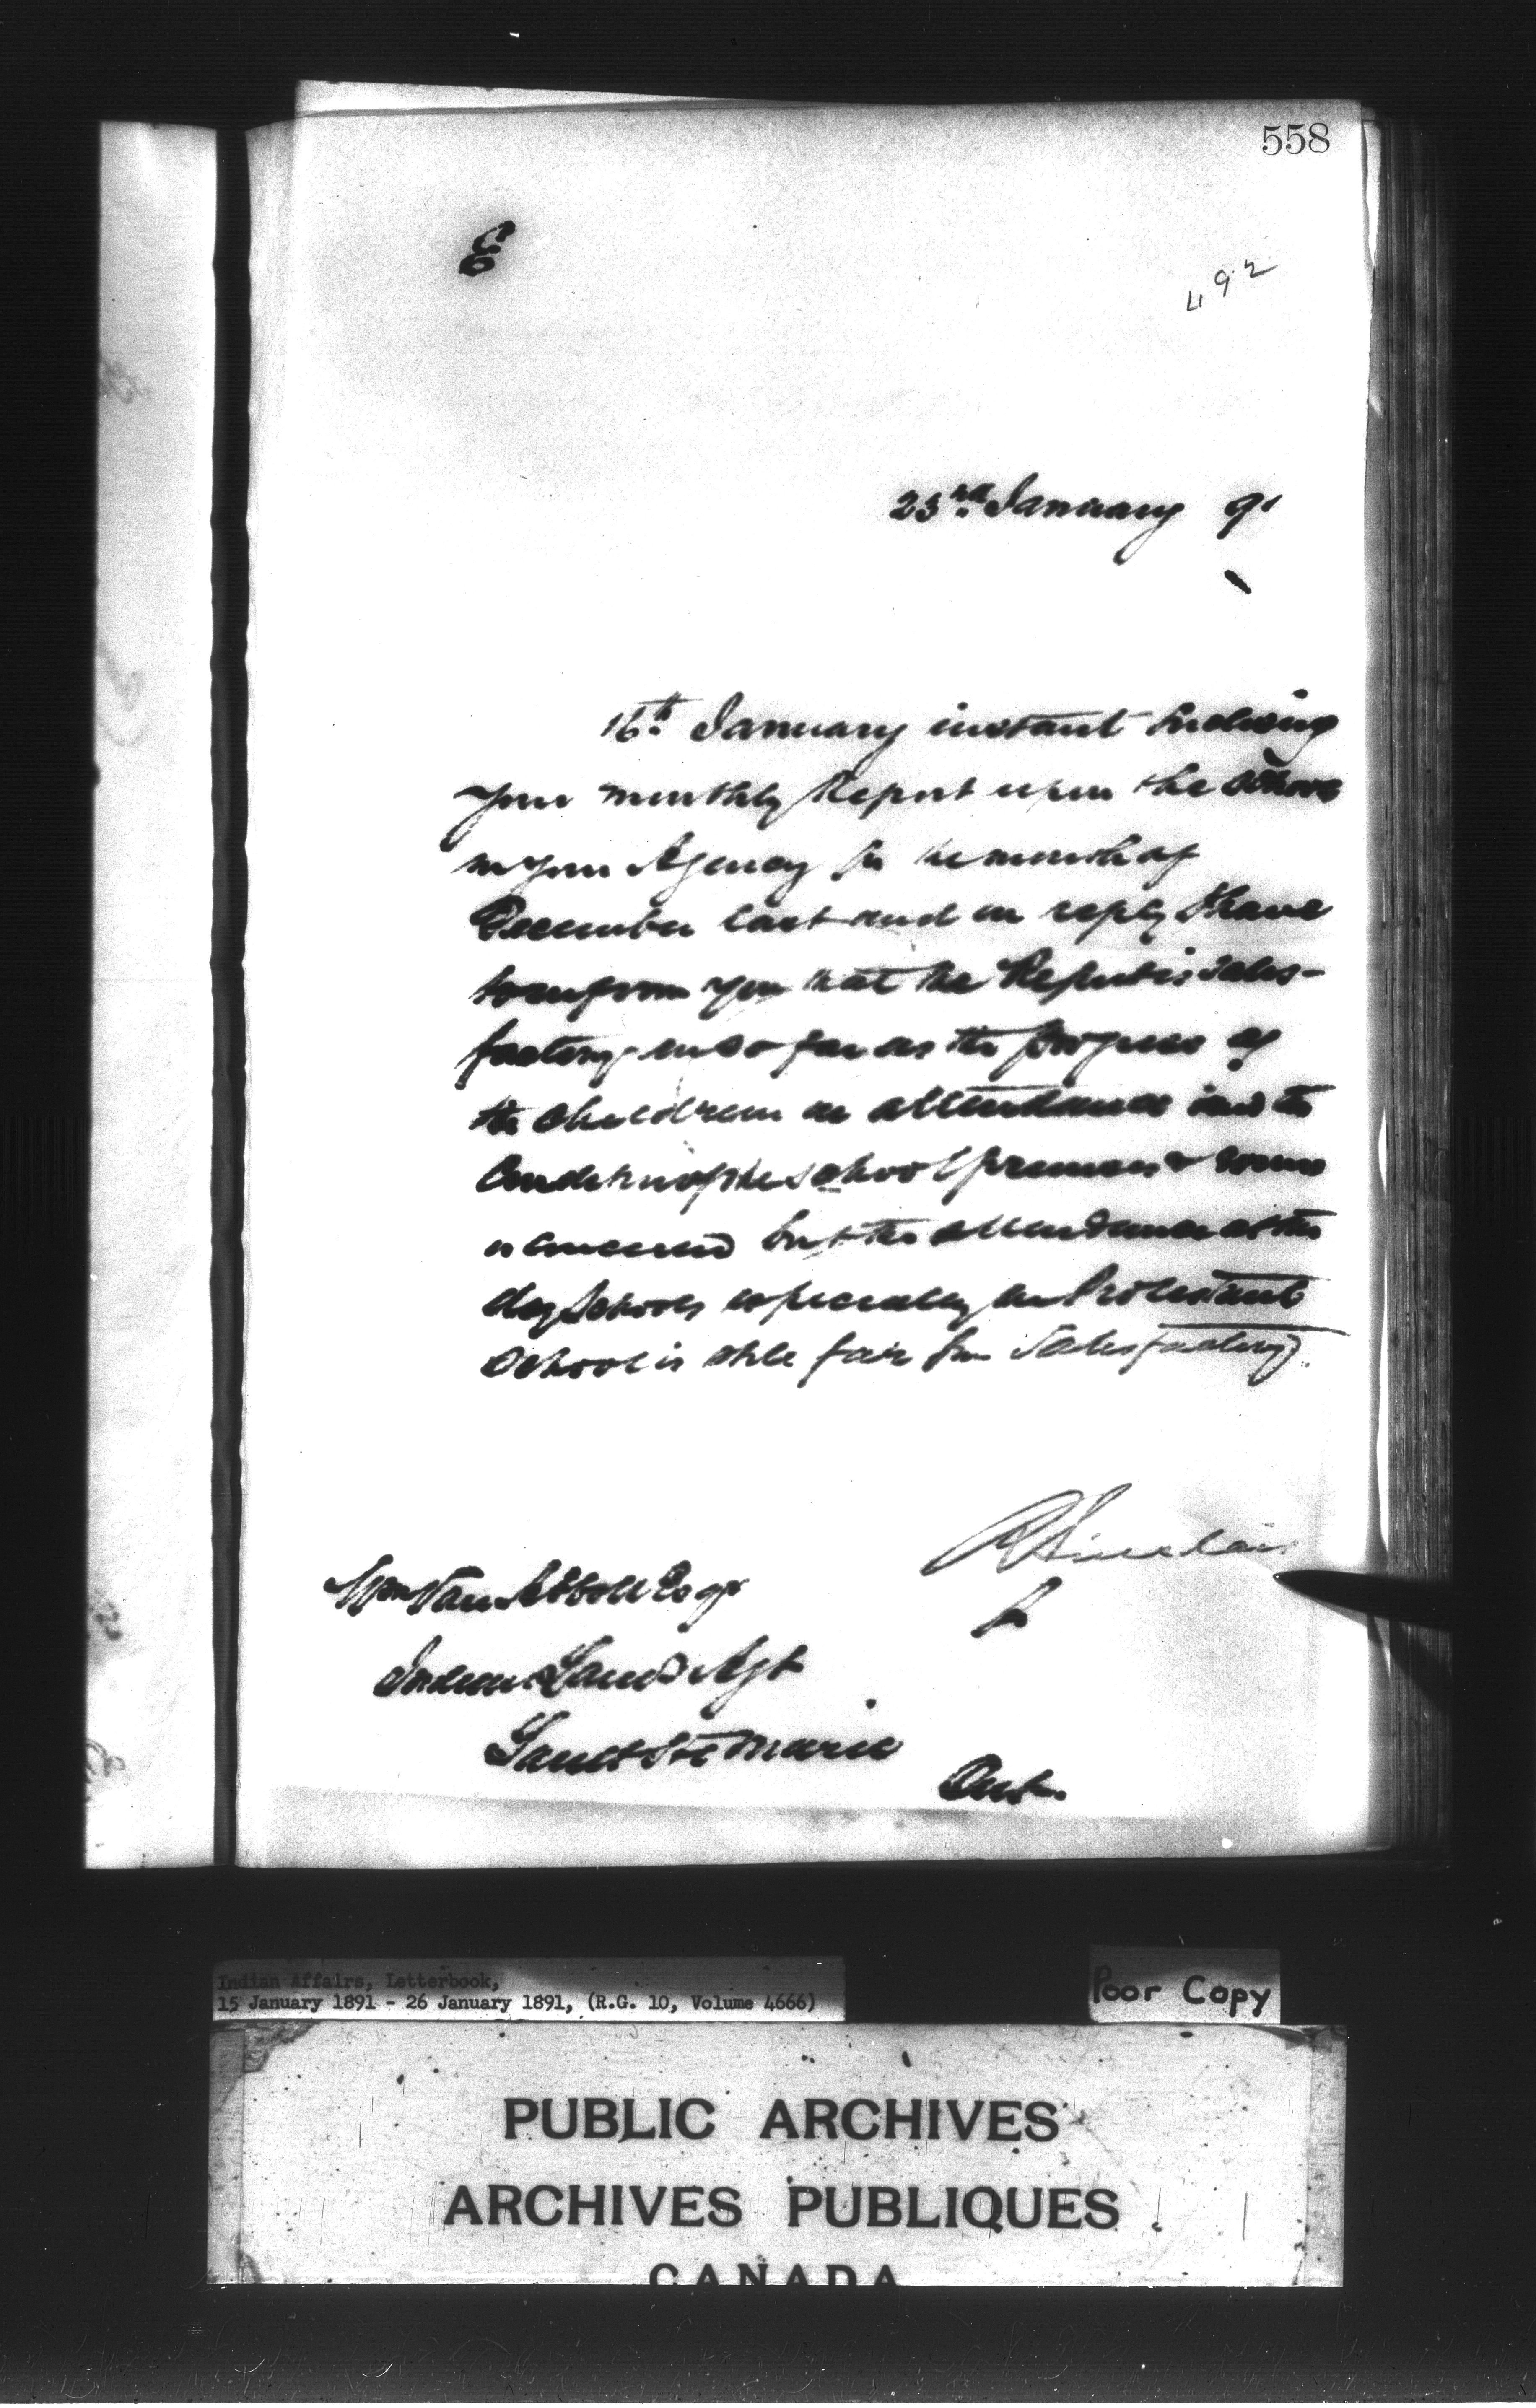 558
492
23rd January 91
16th January instant Enclosing
your monthly Report upon the schools
in your Agency for the month of
December last and in reply I have
to inform you that the Report is satis-
factory in so far as the progress of
the children in attendance and the
Condition of the school premises & rooms
is concerned but the attendance at the
day Schools especially the Protestant
School is still far from Satisfactory.
R Sinclair
for
Wm Van Abbott Esqr
Indian Land Agt
Sault Ste Marie
Ont.
Indian Affairs, Letterbook,
15 January 1891 - 26 January 1891, (R.G. 10, Volume 4666)
Poor Copy
PUBLIC ARCHIVES
ARCHIVES PUBLIQUES
CANADA